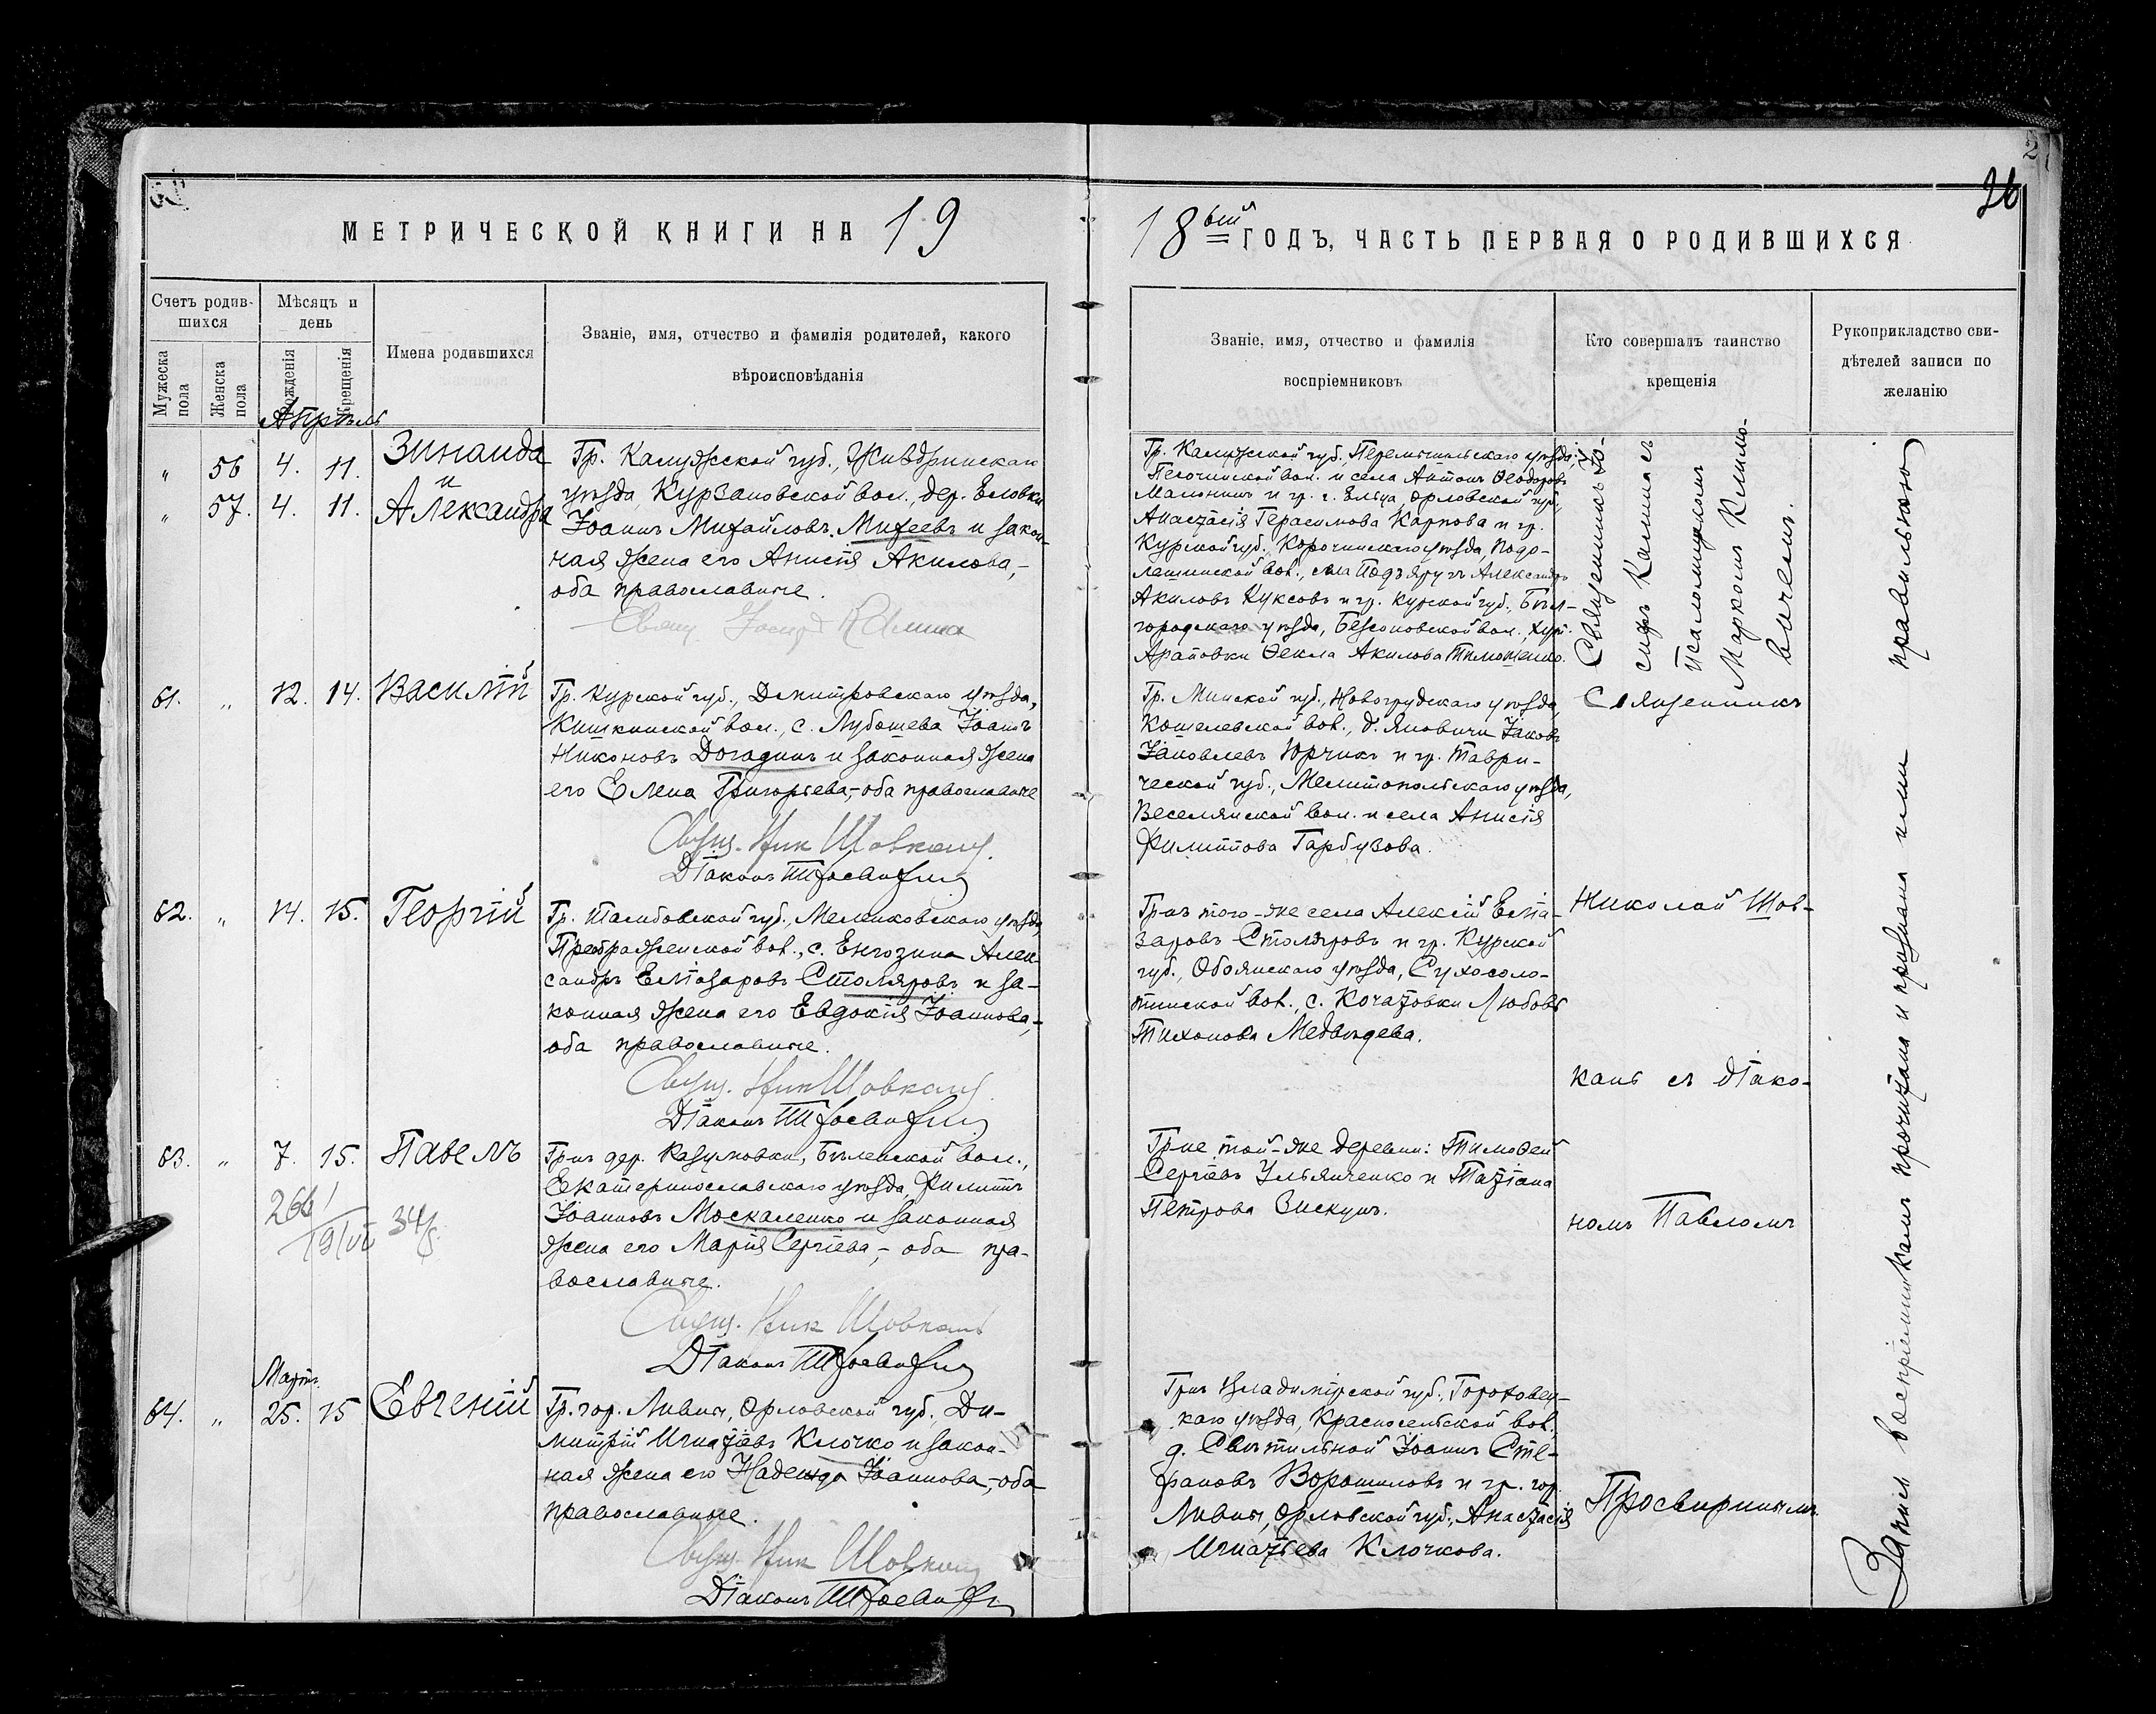 26
МЕТРИЧЕСКОЙ КНИГИ НА 19
18ый ГОДЪ, ЧАСТЬ ПЕРВАЯ О РОДИВШИХСЯ
Счетъ родив-
шихся
Мужеска пола
Женска пола
Мѣсяцъ и
день
Рожденія
Крещенія
Имена родившихся
Званіе, имя, отчество и фамилія родителей, какого
вѣроисповѣданія
Званіе, имя, отчество и фамилія
воспріемниковъ
Кто совершалъ таинство
крещенія
Рукоприкладство сви-
дѣтелей записи по
желанію
Апрѣль
„ 56 4. 11. Зинаида
и
„ 57. 4. 11. Александра
Гр. Калужской губ., Живдринскаго
уѣзда, вол., дер. Еловки
Іоаннъ Михайловъ Михеевъ и закон-
ная жена его Анисія Акилова,-
оба православные.
Свящ Іосиф Калина
Гр. Калужской губ., Перемышльскаго уѣзда,
вол. и села Антонъ Ѳеодоровъ
и гр. г. Ельца, Орловской губ.,
Анастасія Герасимова Карпова и гр.
Курской губ., Корочинскаго уѣзда, Подо-
вол., села Подъяругъ Александръ
Акиловъ Куксовъ и гр. Курской губ., Бѣл-
городскаго уѣзда, Бессоновской вол., хут.
Араповки Ѳекла Акилова Тимошенко.
Священникъ Іо-
сифъ Калина съ
псаломщикомъ
Маркомъ Климо-
вичемъ.
61. „ 12. 14. Василій
Гр. Курской губ., Дмитровскаго уѣзда,
вол., с. Лубошева Іоаннъ
Никоновъ Догадинъ и законная жена
его Елена Григорьева,-оба православные
Свящ. Ник Шовкань.
Діаконъ ППросвиринъ
Гр. Минской губ., Новогрудскаго уѣзда,
Кошелевской вол., д. Яновичи Іаковъ
Іаковлевъ Юрчикъ и гр. Таври-
ческой губ., Мелитопольскаго уѣзда,
Веселянской вол. и села Анисія
Филиппова Гарбузова.
Священникъ
62. „ 14. 15. Георгій
Гр. Тамбовской губ., уѣзда,
вол., с. Алек-
сандръ Еліазаровъ Столяровъ и за-
конная жена его Евдокія Іоаннова,-
оба православные.
Свящ. Ник Шовкань
Діаконъ ППросвиринъ
Гр-нъ того-же села Алексій Еліа-
заровъ Столяровъ и гр. Курской
губ., Обоянскаго уѣзда, Сухосоло-
тинской вол., с. Кочатовки Любовь
Тихонова Медвѣдева.
Николай Шов-
кань съ діако-
63. „ 7. 15. Павелъ
Гр-нъ дер. Разумовки, Бѣленской вол.,
Екатеринославскаго уѣзда, Филиппъ
Іоанновъ Москаленко и законная
жена его Марія Сергіева,- оба пра-
вославные.
Свящ. Ник Шовкань
Діаконъ ППросвиринъ
Гр-не той-же деревни: Тимоѳей
Сергіевъ Ульянченко и Татіана
Петрова Вискунъ.
номъ Павломъ
Мартъ.
64. „ 25. 15 Евгеній
Гр. гор. Ливны, Орловской губ. Ди-
митрій Игнатіевъ Клочко и закон-
ная жена его Надежда Іоаннова,-оба
православные.
Свящ. Ник Шовкань
Діаконъ ППросвиринъ
Гр-нъ Владимірской губ., Гороховец-
каго уѣзда, Красносельской вол.,
д. Свѣтильной Іоаннъ Сте-
фановъ Ворошиловъ и гр. гор.
Ливны, Орловской губ., Анастасія
Игнатьева Клочкова.
Просвиринымъ.
Запись воспріемникамъ прочитана и признана ими правильною